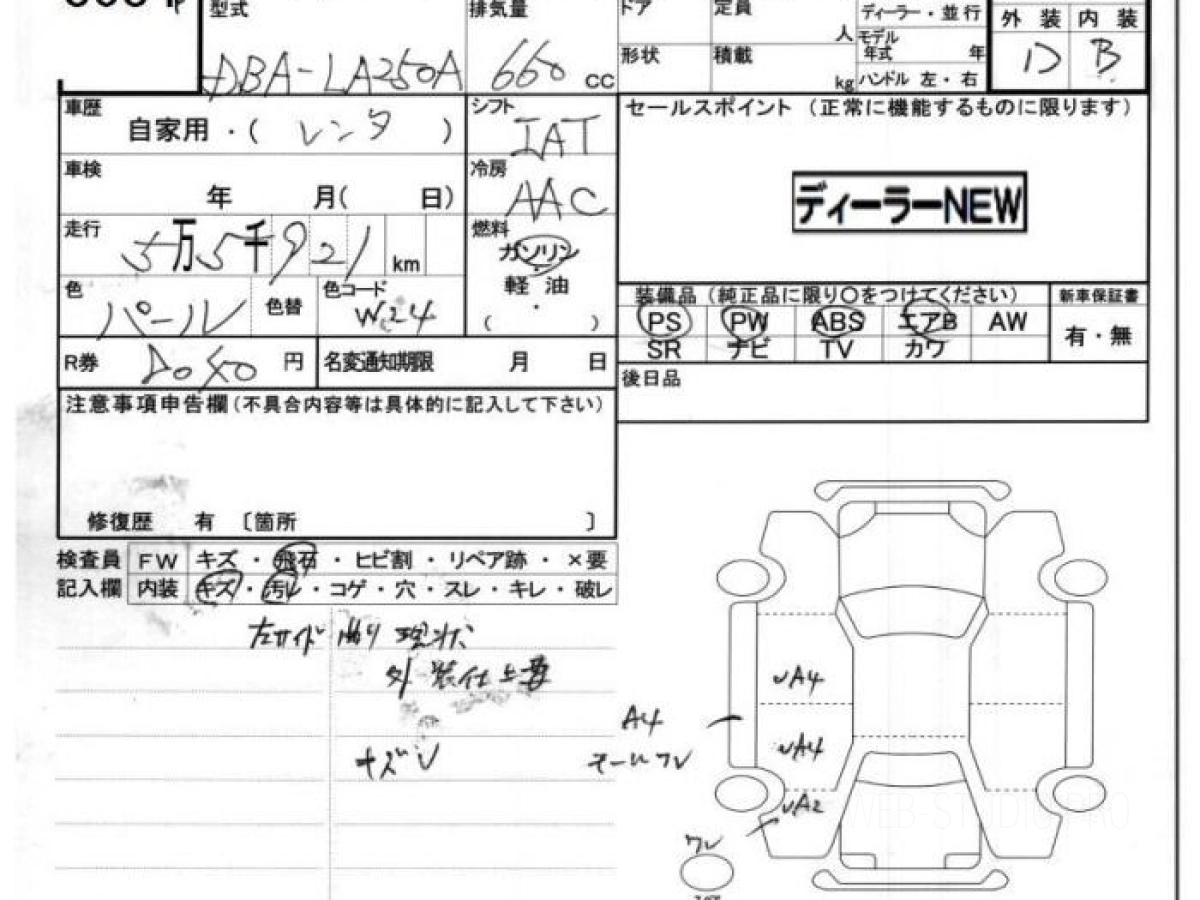 型式 排気量 ドア 定員 ディーラー・並行
人 モデル 年式 年 外装 内装
DBA-LA250A 660 cc 形状 積載 kg ハンドル 左・右 D B
車歴 自家用・( レンタ ) シフト IAT セールスポイント (正常に機能するものに限ります)
車検 年 月( 日) 冷房 AAC
ディーラーNEW
走行 5万5千921 km 燃料 ガソリン
軽油
・
( )
色 パール 色替 色コード W24
装備品 (純正品に限り〇をつけてください) 新車保証書
PS PW ABS エアB AW 有・無
SR ナビ TV カワ
R券 円 名変通知期限 月 日
後日品
注意事項申告欄(不具合内容等は具体的に記入して下さい)
修復歴 有 〔箇所 〕
検査員 FW キズ・飛石・ヒビ割・リペア跡・×要
記入欄 内装 キズ・汚レ・コゲ・穴・スレ・キレ・破レ
左サイド 曲り 現状
外装仕上要
A4
モールワレ
UA4
UA4
UA2
ワレ
WEB-STUDIO.PRO